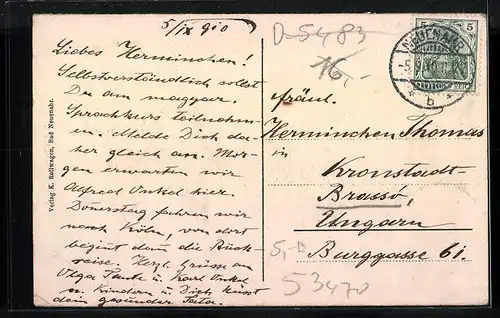 5/IX 910
Liebes Herminchen!
Selbstverständlich sollst
Du am magyar.
Sprachkurs teilnehm-
en. Melde Dich da-
her gleich an. Mor-
gen erwarten wir
Alfred Onkel hier.
Donerstag fahren wir
nach Köln, von dort
begint dan die Rück-
reise. Herzl. Grüsse an
Olga Tante u. Karl Onkel
u. Kinder u. Dich küsst
dein gesunder Tata.
Verlag K. Rollwagen, Bad Neuenahr.
D-5483
16,-
5
5
NEUENAHR
b
Fräul.
Herminchen Thomas
in
Kronstadt-
Brassó,
Ungarn
Burggasse 61.
53470